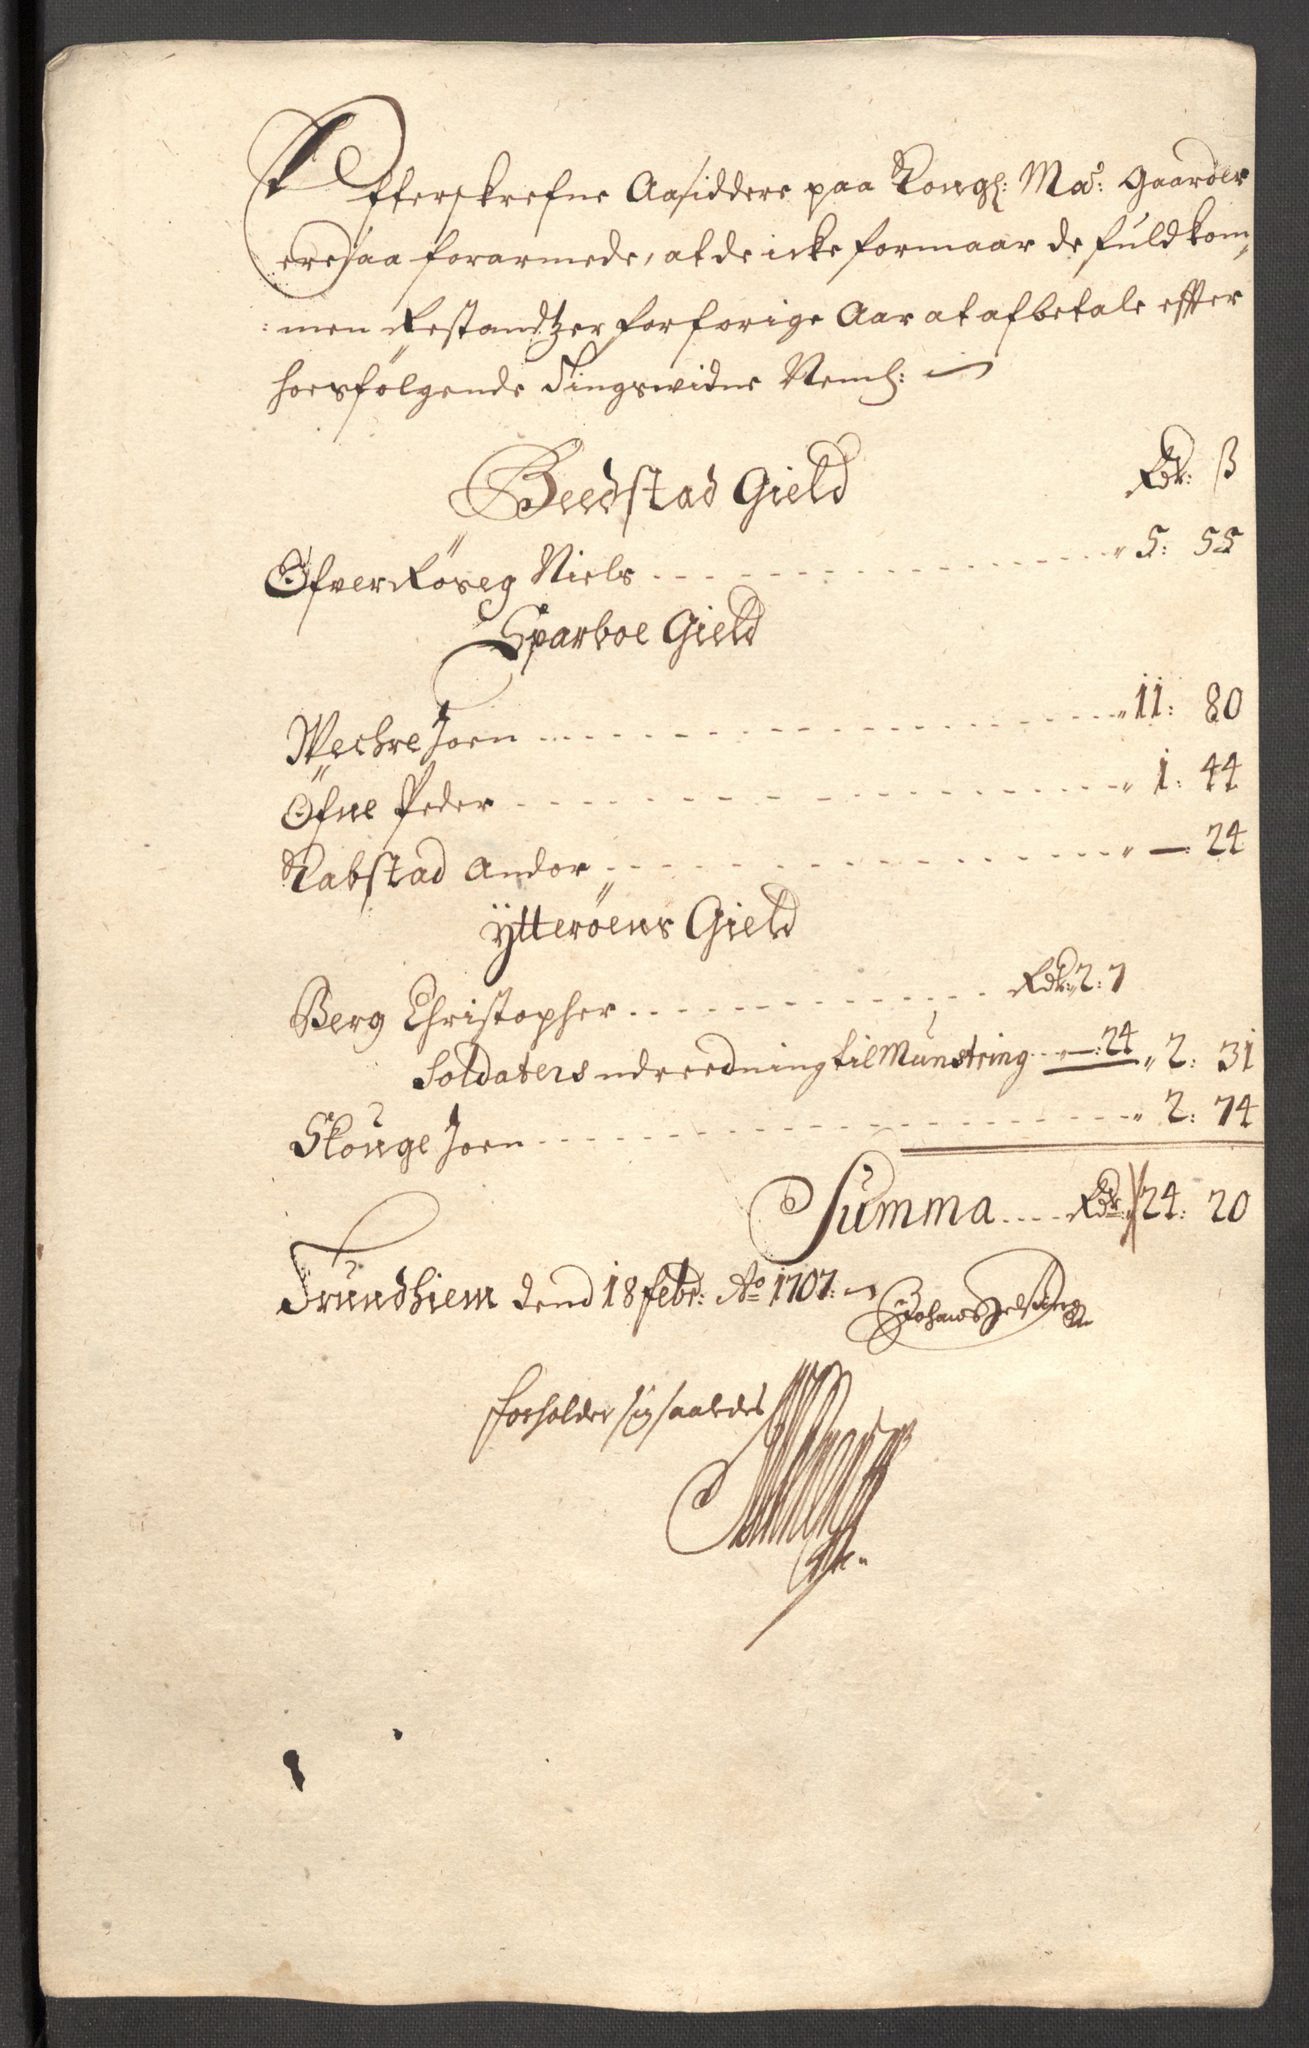 Efterskrefne Aasiddere paa Kongl: Maÿ: Gaarder
ere saa forarmede, at de icke formaar de fuldkom¬
:men Restandtzer for forige Aar at afbetale effter
hoesfølgende Tingswidne Neml:
Beedstad Gield Rdr: ß
Øfver Røseg Niels 5: 55
Sparboe Gield
Wechre Joen 11: 80
Øfne Peder 1: 44
Rabstad Andor —: 24
Ÿtterøens Gield
Berg Christopher Rdr: 2: 7
Soldaters udreedning til Munstring —: 24 2: 31
Skouge Joen 2: 74
Summa Rdr: 24: 20
Trundhiem dend 18 febr: Ao 1707:
forholder sig saaledes